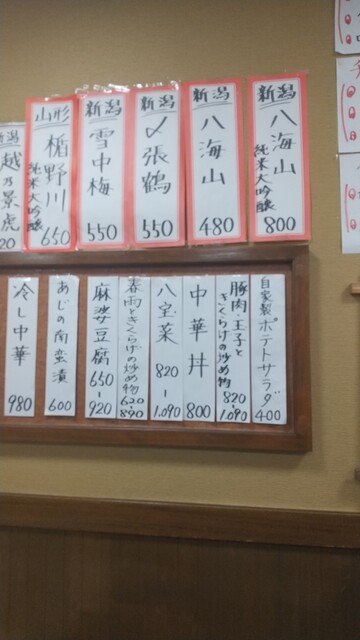 新潟 八海山 純米大吟醸 800
新潟 八海山 480
新潟 〆張鶴 550
新潟 雪中梅 550
山形 楯野川 純米大吟醸 650
越乃景虎
自家製ポテトサラダ 400
豚肉・玉子と
きくらげの炒め物 820-1,090
中華丼 800
八宝菜 820-1,090
春雨ときくらげの炒め物 620-890
麻婆豆腐 650-920
あじの南蛮漬 600
冷し中華 980